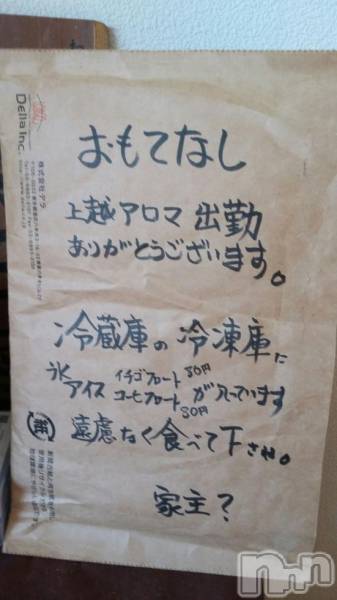 おもてなし
上越アロマ 出勤
ありがとうございます。
冷蔵庫の冷凍庫に
氷
アイス イチゴフロート 30円
コーヒフロート 30円
が入っています
遠慮なく食べて下さい。
家主?
Della Inc.
株式会社デラ
紙